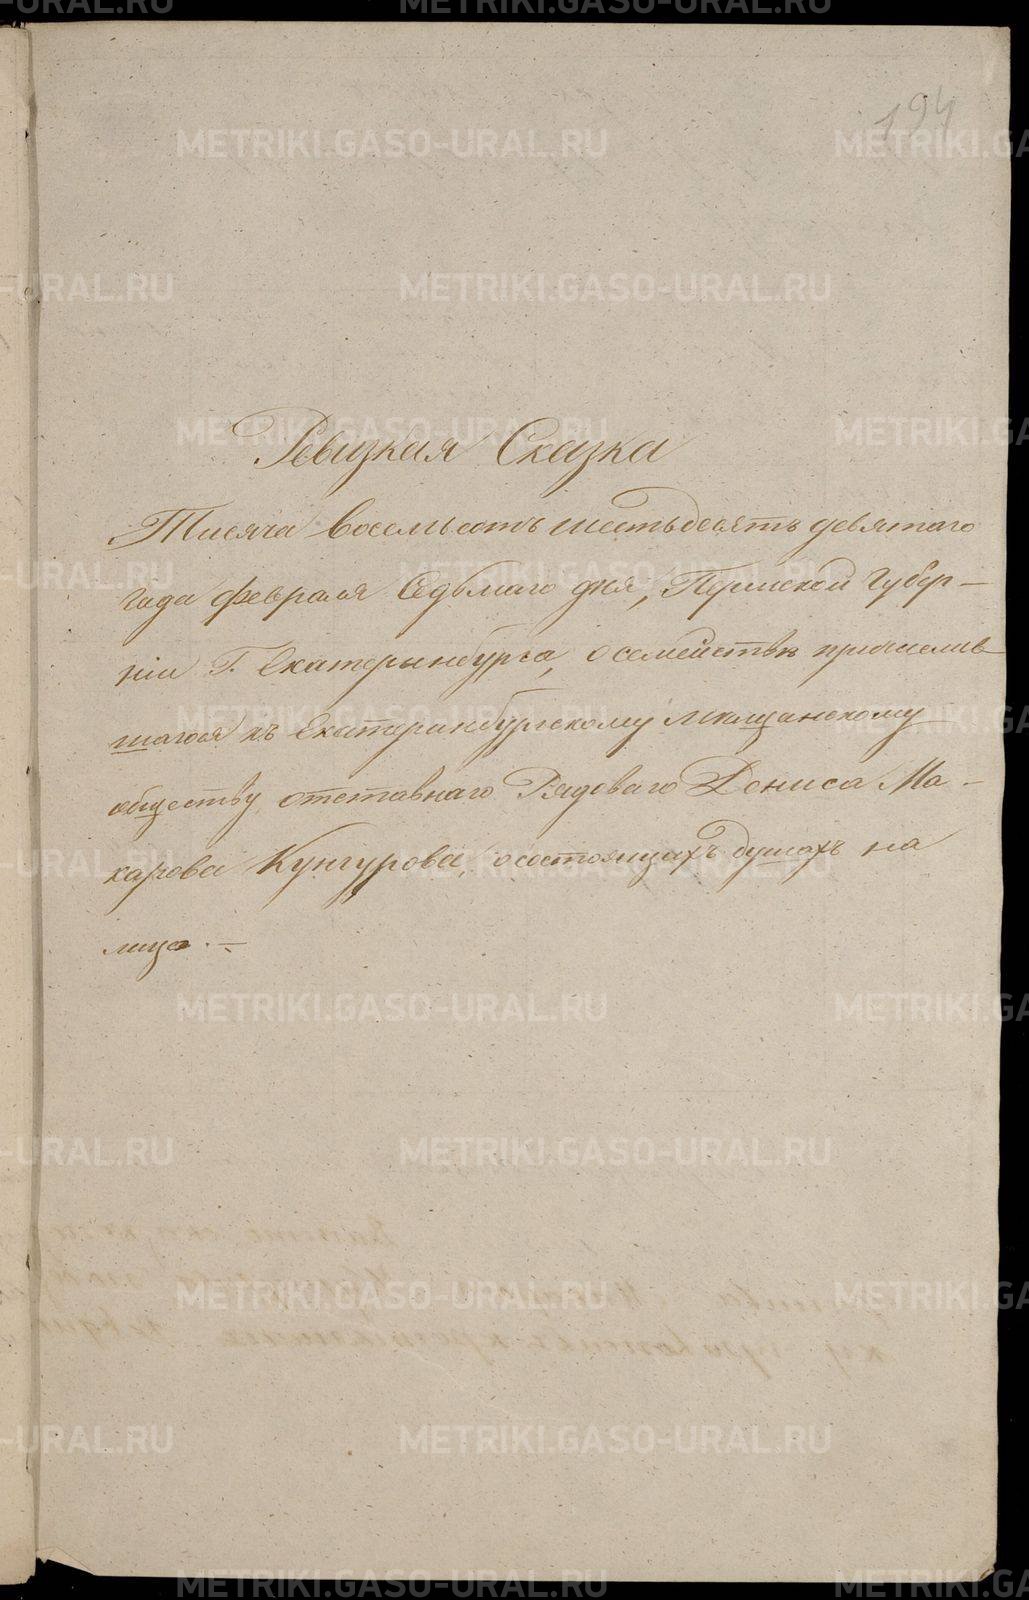 194
Ревизкая Сказка
Тисяча восемьсотъ шестьдесятъ девятаго
года февраля Седьмаго дня, Пермской Губер-
ніи Г. Екатеринбурга, о семействѣ причислив
шагося къ Екатеринбургскому мѣщанскому
обществу отставнаго Рядоваго Дениса Ма-
карова Кунгурова, о состоящихъ душахъ на
лицо. —
METRIKI.GASO-URAL.RU